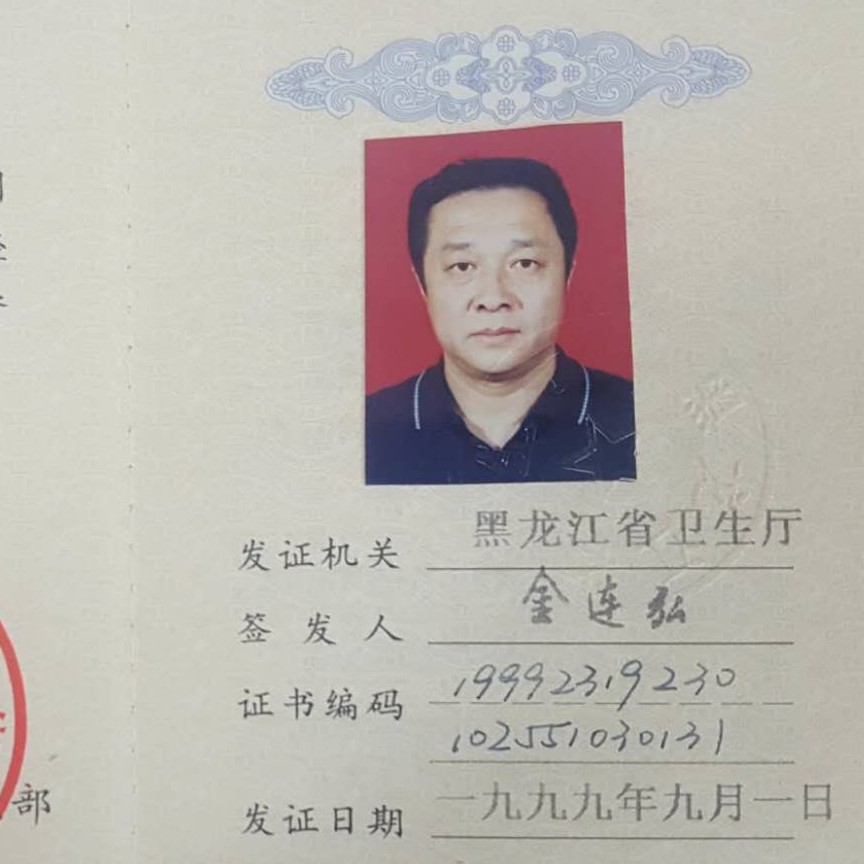 发证机关 黑龙江省卫生厅
签发人 金连弘
证书编码 19992319230
102551030131
发证日期 一九九九年九月一日
部